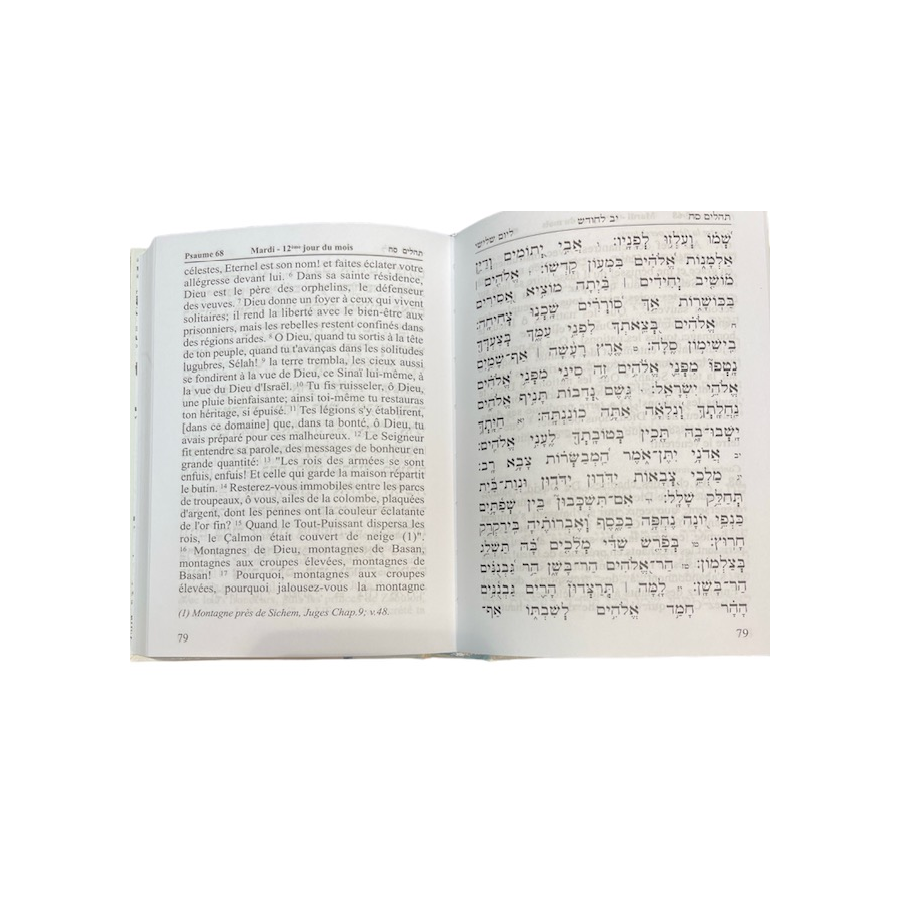 Psaume 68 Mardi - 12ème jour du mois תהלים סח
célestes, Eternel est son nom! et faites éclater votre
allégresse devant lui. 6 Dans sa sainte résidence,
Dieu est le père des orphelins, le défenseur
des veuves. 7 Dieu donne un foyer à ceux qui vivent
solitaires; il rend la liberté avec le bien-être aux
prisonniers, mais les rebelles restent confinés dans
des régions arides. 8 O Dieu, quand tu sortis à la tête
de ton peuple, quand tu t'avanças dans les solitudes
lugubres, Sélah! 9 la terre trembla, les cieux aussi
se fondirent à la vue de Dieu, ce Sinaï lui-même, à
la vue du Dieu d'Israël. 10 Tu fis ruisseler, ô Dieu,
une pluie bienfaisante; ainsi toi-même tu restauras
ton héritage, si épuisé. 11 Tes légions s'y établirent,
[dans ce domaine] que, dans ta bonté, ô Dieu, tu
avais préparé pour ces malheureux. 12 Le Seigneur
fit entendre sa parole, des messages de bonheur en
grande quantité: 13 "Les rois des armées se sont
enfuis, enfuis! Et celle qui garde la maison répartit
le butin. 14 Resterez-vous immobiles entre les parcs
de troupeaux, ô vous, ailes de la colombe, plaquées
d'argent, dont les pennes ont la couleur éclatante
de l'or fin? 15 Quand le Tout-Puissant dispersa les
rois, le Çalmon était couvert de neige (1)".
16 Montagnes de Dieu, montagnes de Basan,
montagnes aux croupes élevées, montagnes de
Basan! 17 Pourquoi, montagnes aux croupes
élevées, pourquoi jalousez-vous la montagne
(1) Montagne près de Sichem, Juges Chap.9; v.48.
79
תהלים סח יב לחודש ליום שלישי
שְׁמ֗וֹ וְעִלְז֥וּ לְפָנָֽיו: אֲבִ֣י יְ֭תוֹמִים וְדַיַּ֣ן
אַלְמָנ֑וֹת אֱ֝לֹהִ֗ים בִּמְע֥וֹן קָדְשֽׁוֹ: אֱלֹהִ֤ים |
מ֘וֹשִׁ֤יב יְחִידִ֨ים | בַּ֗יְתָה מוֹצִ֣יא אֲ֭סִירִים
בַּכּוֹשָׁר֑וֹת אַ֥ךְ ס֝וֹרֲרִ֗ים שָׁכְנ֥וּ צְחִיחָֽה:
ח אֱלֹהִ֗ים בְּ֭צֵאתְךָ לִפְנֵ֣י עַמֶּ֑ךָ בְּצַעְדְּךָ֖
בִֽישִׁימ֣וֹן סֶֽלָה: ט אֶ֤רֶץ רָעָ֨שָׁה | אַף־שָׁמַ֣יִם
נָטְפוּ֮ מִפְּנֵ֪י אֱלֹ֫הִ֥ים זֶ֥ה סִינַ֑י מִפְּנֵ֥י אֱ֝לֹהִ֗ים
אֱלֹהֵ֥י יִשְׂרָאֵֽל: גֶּ֣שֶׁם נְ֭דָבוֹת תָּנִ֣יף אֱלֹהִ֑ים
נַחֲלָתְךָ֥ וְ֝נִלְאָ֗ה אַתָּ֥ה כֽוֹנַנְתָּֽהּ: יא חַיָּתְךָ֥
יָֽשְׁבוּ־בָ֑הּ תָּ֤כִ֥ין בְּטוֹבָתְךָ֖ לֶעָנִ֣י אֱלֹהִֽים:
יב אֲדֹנָ֥י יִתֶּן־אֹ֑מֶר הַֽ֝מְבַשְּׂר֗וֹת צָבָ֥א רָֽב:
יג מַלְכֵ֣י צְ֭בָאוֹת יִדֹּד֣וּן יִדֹּד֑וּן וּנְוַת־בַּ֝֗יִת
תְּחַלֵּ֥ק שָׁלָֽל: יד אִֽם־תִּשְׁכְּבוּן֮ בֵּ֤ין שְׁפַ֫תָּ֥יִם
כַּנְפֵ֣י י֭וֹנָה נֶחְפָּ֣ה בַכֶּ֑סֶף וְ֝אֶבְרוֹתֶ֗יהָ בִּֽירַקְרַ֥ק
חָרֽוּץ: טו בְּפָ֘רֵ֤שׂ שַׁדַּ֓י מְלָ֘כִ֤ים בָּ֗הּ תַּשְׁלֵ֥ג
בְּצַלְמֽוֹן: טז הַר־אֱ֭לֹהִים הַר־בָּשָׁ֑ן הַ֥ר גַּ֝בְנֻנִּ֗ים
הַר־בָּשָֽׁן: יז לָ֤מָּה | תְּֽרַצְּדוּן֮ הָרִ֪ים גַּבְנֻ֫נִּ֥ים
הָהָ֗ר חָמַ֣ד אֱלֹהִ֣ים לְשִׁבְתּ֑וֹ אַף־
79